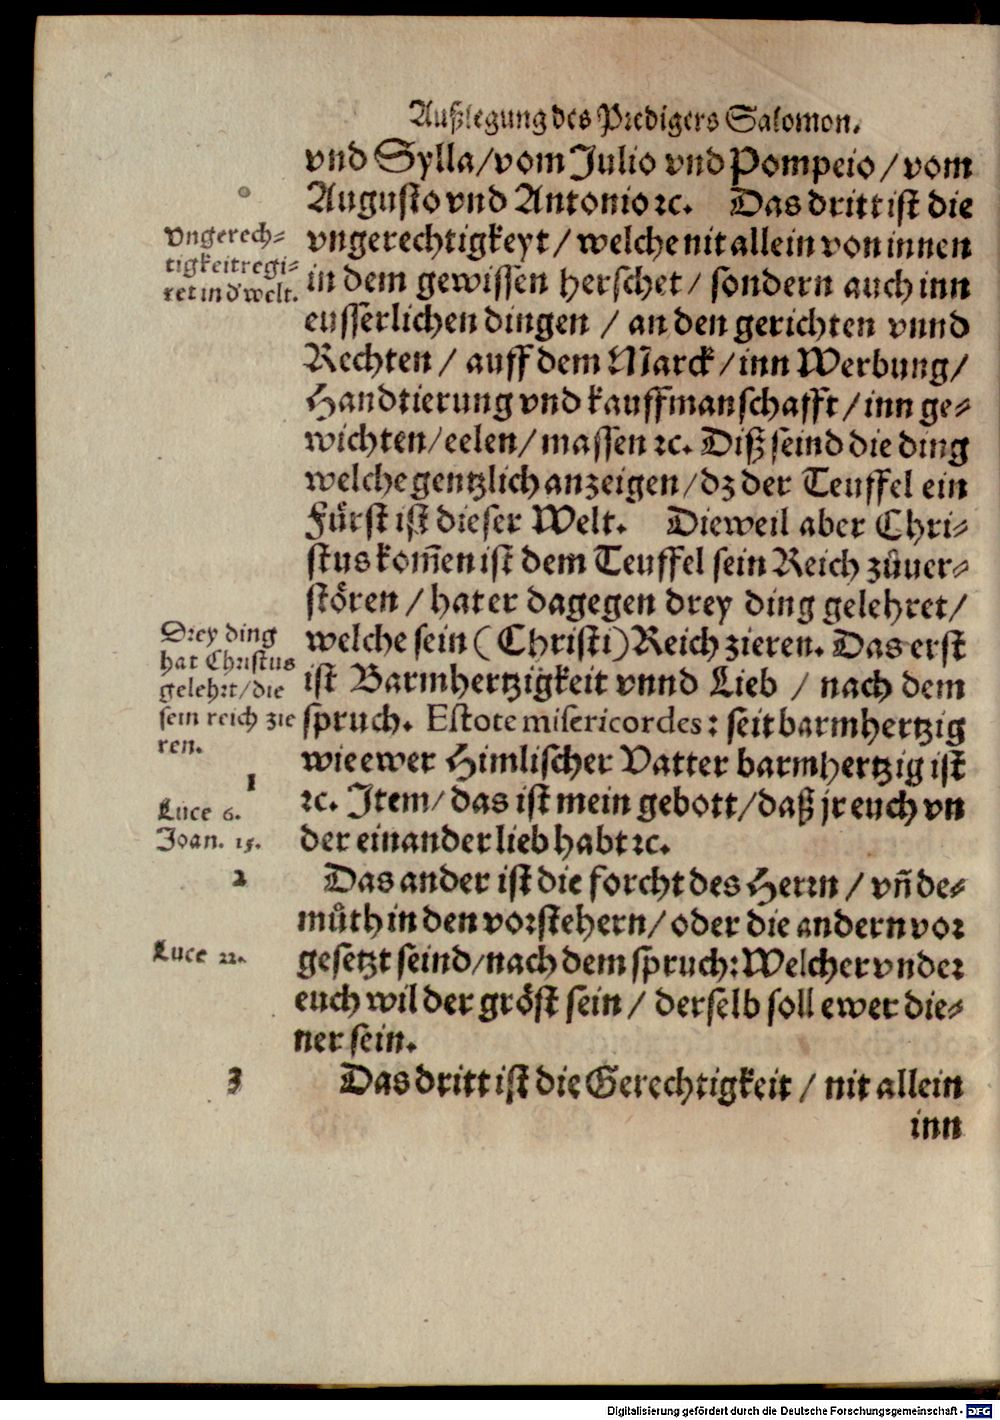 Außlegung des Predigers Salomon.
vnd Sylla/vom Julio vnd Pompeio/vom
Augusto vnd Antonio ꝛc. Das dritt ist die
vngerechtigkeyt/welche nit allein von innen
in dem gewissen herschet/sondern auch inn
eusserlichen dingen/an den gerichten vnnd
Rechten/auff dem Marck/inn Werbung/
Handtierung vnd kauffmanschafft/inn ge⸗
wichten/eelen/massen ꝛc. Diß seind die ding
welche gentzlich anzeigen/dz der Teuffel ein
Fürst ist dieser Welt. Dieweil aber Chri⸗
stus kom̃en ist dem Teuffel sein Reich zůuer⸗
stören/hat er dagegen drey ding gelehret/
welche sein (Christi) Reich zieren. Das erst
ist Barmhertzigkeit vnnd Lieb/nach dem
spruch. Estote misericordes: seit barmhertzig
wie ewer Himlischer Vatter barmhertzig ist
ꝛc. Item/das ist mein gebott/daß jr euch vn
der einander lieb habt ꝛc.
Das ander ist die forcht des Herrn/vn̄ de⸗
můth in den vorstehern/oder die andern vor
gesetzt seind/nach dem spruch: Welcher vnder
euch wil der gröst sein/derselb soll ewer die⸗
ner sein.
Das dritt ist die Gerechtigkeit/nit allein
inn
vngerech⸗
tigkeit regi⸗
ret in d' welt.
Drey ding
hat Christus
gelehrt/die
sein reich zie
ren.
1
Luce 6.
Joan. 15.
2
Luce 22.
3
Digitalisierung gefördert durch die Deutsche Forschungsgemeinschaft - DFG